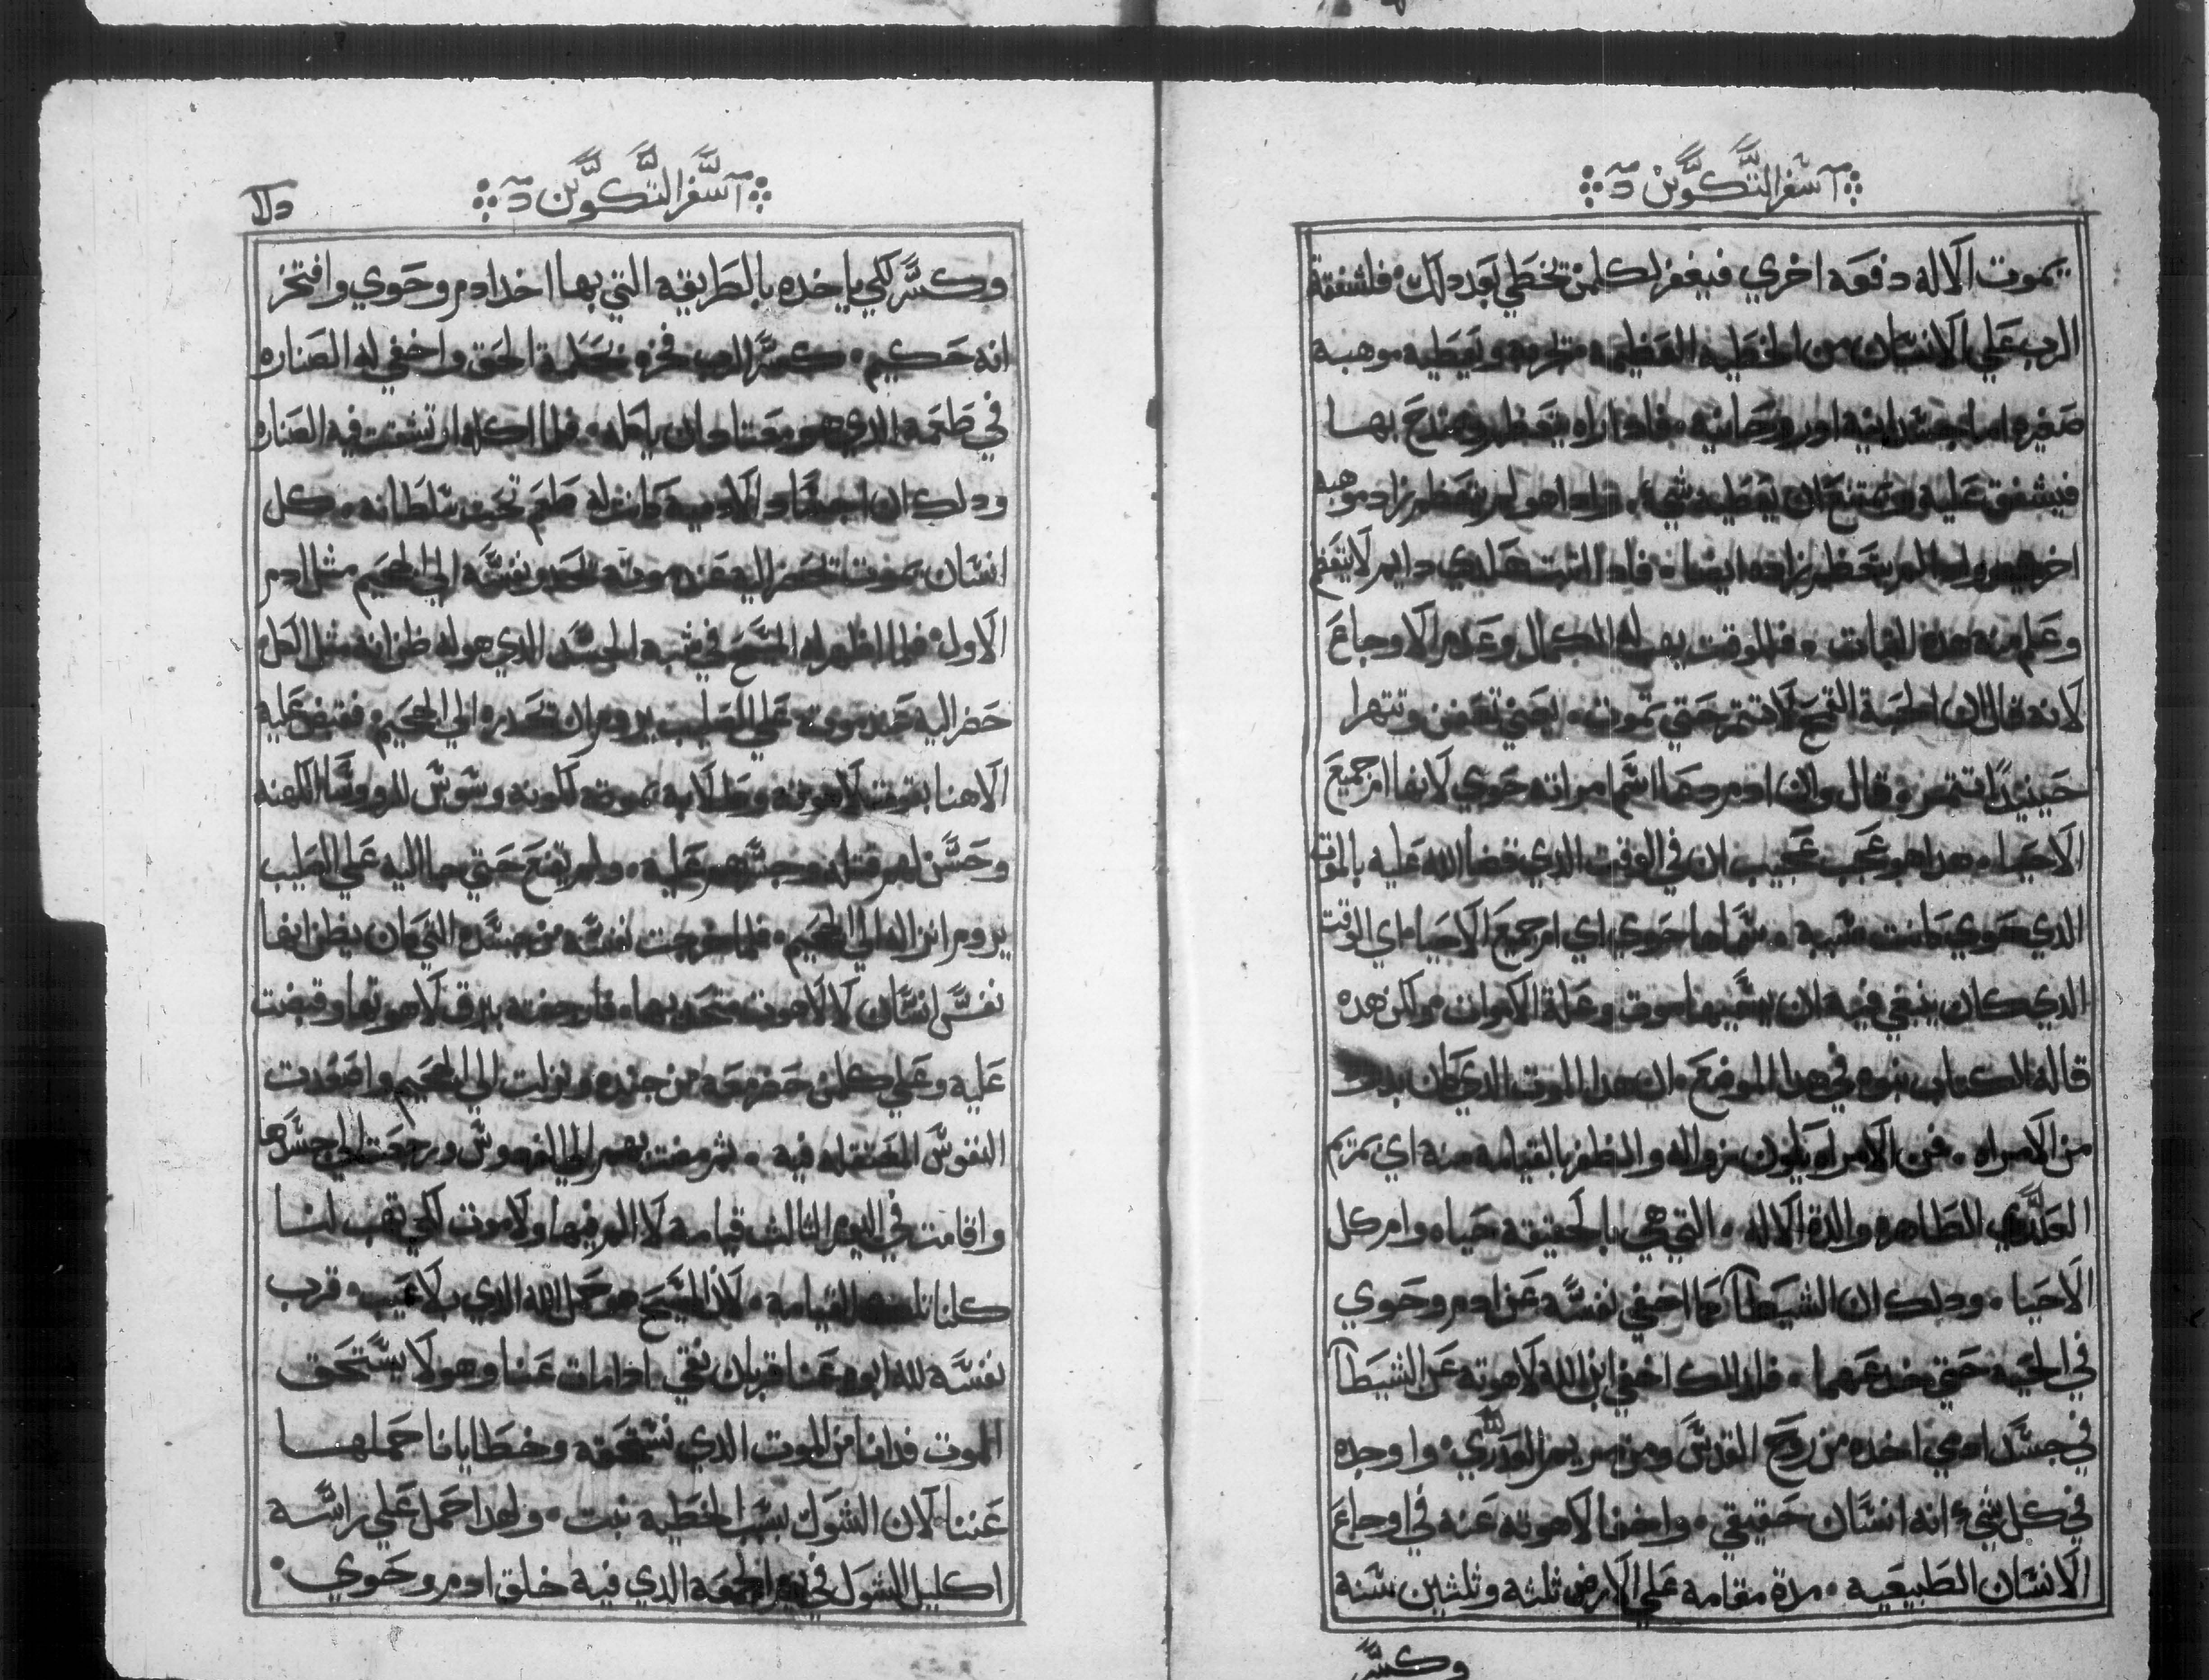 سفر التكوين
يموت الاله دفعه اخري فيغفر لكلمن يخطي بعد دلك فلشفقة
الرب علي الانسان من الخطيه العظيمه ويعطيه موهبه
صغيره اما جسدانيه او روحانيه فادا راه يتعظم ويمتدح بها
فيشفق عليه ويمتنع ان يعطيه شي وادا هو لم يتعظم زاده موهبه
اخري وادا لم يتعظم زاده ايضا فادا لتبت هكدي دايم لا يتعظم
وعلم منه هده التبات فللوقت يهب له الكمال وعدم الاوجاع
لانه قال ان الحبة القمح لا تتمر حتي تموت يعني تعفن وتتهرا
حينيدًا تتمر قال وان ادم دعا اسم امراته حوي لانها ام جميع
الاحيا هدا هو عجب عجيب ان في الوقت الدي قضا الله عليه بالموت
الدي حوي كانت سببه سماها حوي اي ام جميع الاحيا اي الوقت
الدي كان ينبغي فيه ان يسميها موت وعلة الاموات ولكن هده
قاله الكتاب بنوه في هدا الموضع ان هدا الموت الدي كان بدوه
من الامراه فمن الامراه يكون زواله والظفر بالقيامه منه اي مريم
العدري الطاهره والدة الاله التي هي بالحقيقه حياه وام كل
الاحيا ودلك ان الشيطان كما اخفي نفسه عن ادم وحوي
في الحيه حتي خدعهما فلدلك اخفي ابن الله لاهوته عن الشيطان
في جسد ادمي اخده من روح القدس ومن مريم العدري واوجده
في كل شيء انه انسان حقيقي واخفا لاهوته عنه في اوجاع
الانسان الطبيعيه مدة مقامه علي الارض ثلثه وثلثين سنه
وكسر
سفر التكوين
وكسر لكي ياخده بالطريقه التي بها اخد ادم وحوي وافتخر
انه حكيم كسر الرب فخره بحكمة الحق واخفي له الصناره
في طعمه الدي هو معتاد ان ياكله فلما اكله ارتشقت فيه الصناره
ودلك ان اجساد الادميه كانت له طعم تحت سلطانه كل
انسان يموت يحضر اليه عند موته ليحدر نفسه الي الجحيم مثل ادم
الاول فلما اظهر له المسيح في شبه الجسد الدي هو له ظن انه مثل الكل
حضر اليه عند موته علي الصليب يروم ان يحدره الي الجحيم فقبض عليه
الاهنا بقوة لاهوته وطالبه بموته لكونه وسوس لدروسا الكهنه
وحسن لهم قتله وجسرهم عليه ولم يقنع حتي جا اليه علي الصليب
يروم انزاله الي الجحيم فلما خرجت نفسه من جسده التي كان يظن انها
نفس انسان كاللاهوت متحد بها فارجفته ببرق لاهوتها وقبضت
عليه وعلي كلمن حضر معه من جنده ونزلت الي الجحيم واصعدت
النفوس المعتقله فيه ثم مضت بهم الي الفردوس ورجعت الي جسدها
واقامت في اليوم الثالث قيامه لا الم فيها ولا موت لكي تهب لنا
كلنا القيامه لان المسيح هو حمل الله الدي بلا عيب قرب
نفسه لله ابوه عنا قربان نقي ادا مات عنا وهو لا يستحق
الموت فدانا من الموت الدي نستحقه وخطايانا حملها
عننا لان الشوك بسبب الخطيه نبت ولهدا حمل علي راسه
اكليل الشوك في يوم الجمعه الدي فيه خلق ادم وحوي